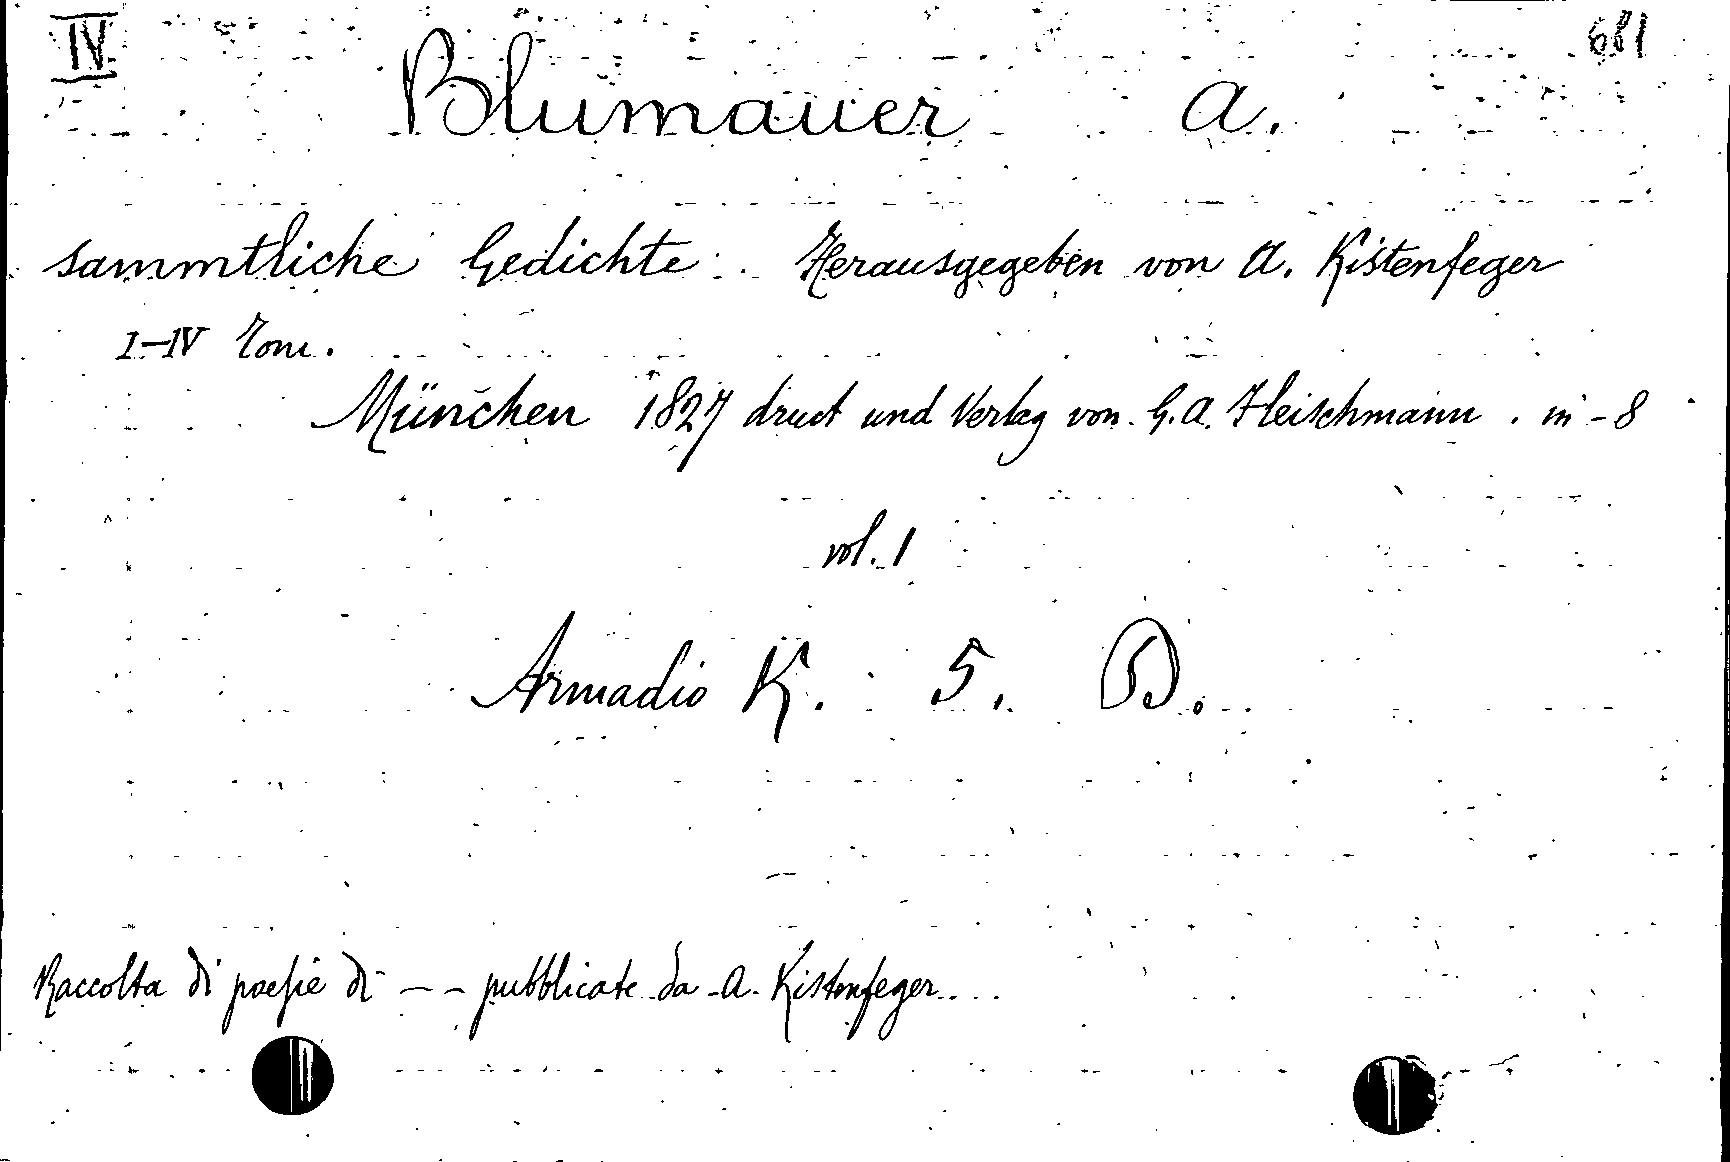 IV 681
Blumauer A.
sammtliche Gedichte. Herausgegeben von A. Kistenfeger
I-IV Tom.
München 1827 druct und Verlag von G. A. Fleischmann. in-8
vol. 1
Armadio K. 5. B.
Raccolta di poesie di -- pubblicate da A. Kistenfeger